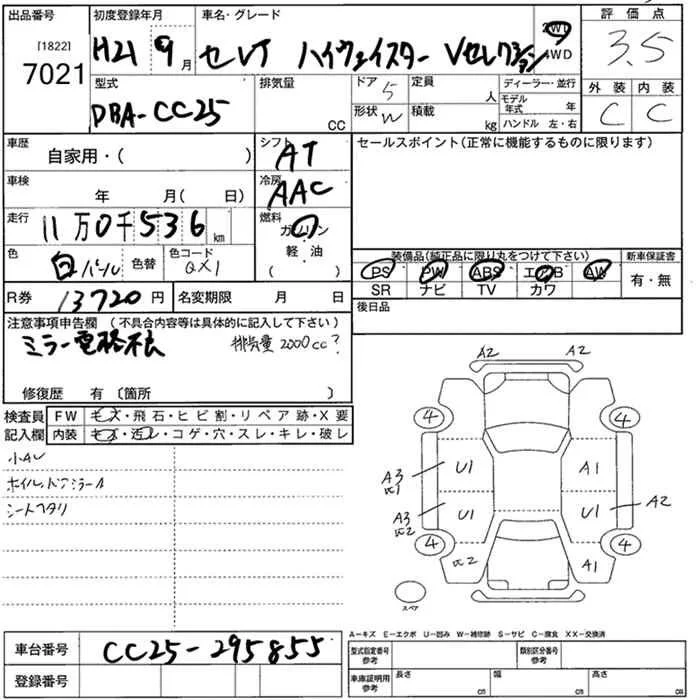 出品番号 初度登録年月 車名・グレード 評価点
[1822]
7021 H21 9月 セレナ ハイウェイスター Vセレクション 2WD 4WD 3.5
型式 排気量 ドア 定員 ディーラー・並行 外装 内装
DBA-CC25 CC 5 人 モデル年式 年 C C
形状 W 積載 kg ハンドル 左・右
車歴 自家用・( ) シフト AT セールスポイント(正常に機能するものに限ります)
車検 年 月( 日) 冷房 AAC
走行 11万0千536km 燃料 ガソリン
軽・油
( )
色 白パール 色替 色コード QX1 装備品(純正品に限り丸をつけて下さい) 新車保証書
PS PW ABS エアB AW 有・無
SR ナビ TV カワ
R券 13720円 名変期限 月 日 後日品
注意事項申告欄 (不具合内容等は具体的に記入して下さい)
ミラー電格不良 排気量2000cc?
修復歴 有 〔箇所 〕
検査員 FW キズ・飛石・ヒビ割・リペア跡・X要
記入欄 内装 キズ・汚レ・コゲ・穴・スレ・キレ・破レ
小AU
シートヘタリ
A2 A2
4 4
A3 U1 A1
A3 U1 U1 A2
4 4
A1
スペア
A-キズ E-エクボ U-凹み W-補修跡 S-サビ C-腐食 XX-交換済
車台番号 CC25-295855
登録番号
型式指定番号 参考 類別区分番号 参考
車庫証明用 参考 長さ cm 幅 cm 高さ cm